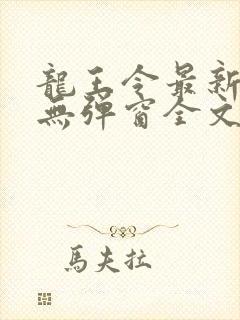 龍王令最新
無彈窗全文
馬夫拉